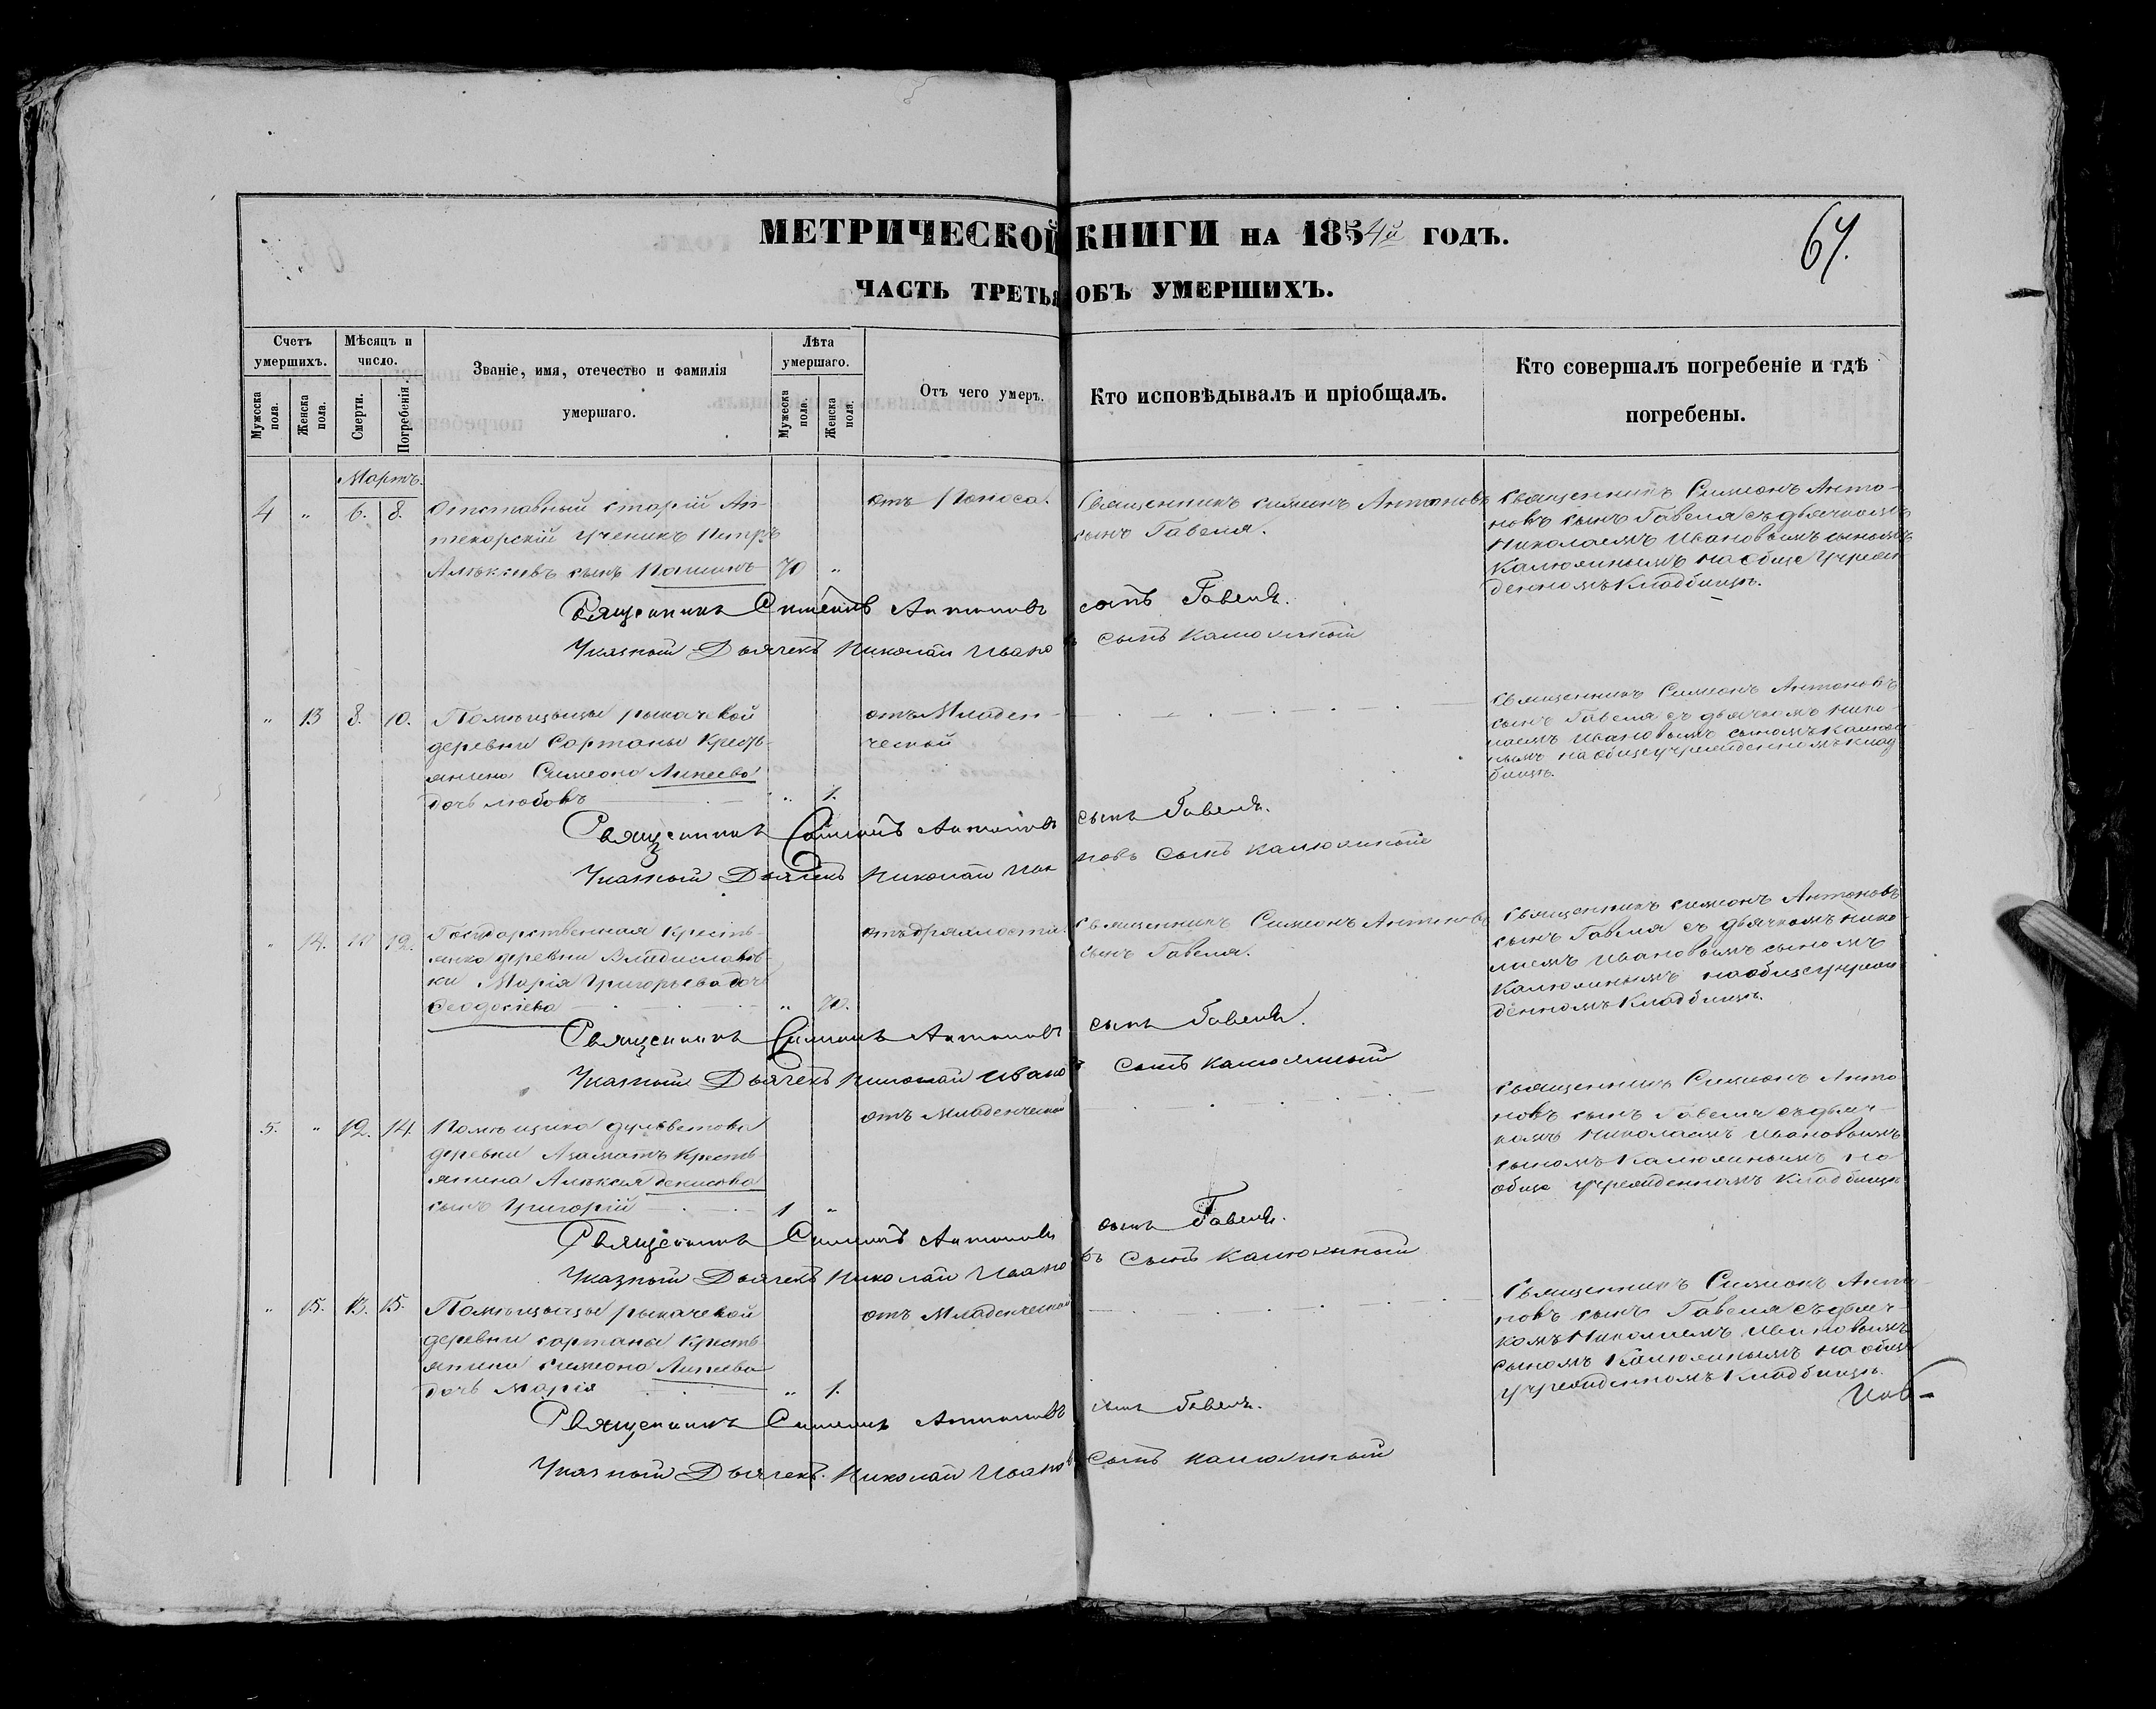 МЕТРИЧЕСКОЙ КНИГИ НА 1854й ГОДЪ.
67.
ЧАСТЬ ТРЕТЬЯ ОБЪ УМЕРШИХЪ.
Счетъ умершихъ.
Мужеска пола.
Женска пола.
Мѣсяцъ и число.
Смерти.
Погребенія.
Званіе, имя, отечество и фамилія умершаго.
Лѣта умершаго.
Мужеска пола.
Женска пола.
Отъ чего умеръ.
Кто исповѣдывалъ и пріобщалъ.
Кто совершалъ погребеніе и гдѣ погребены.
Мартъ.
4 " 6. 8.
Отставный старшій Ап-
текорскій ученикъ Петръ
Алѣксѣевъ сынъ 70 "
отъ Поноса.
Священникъ Симеонъ Антоновъ
сынъ Гавеля.
Священникъ Симеонъ Анто-
новъ сынъ Гавеля съ дьячкомъ
Николаемъ Ивановымъ сыномъ
на обще учреж
денномъ кладбищѣ.
Священникъ Симеонъ Антоновъ сынъ Гавеля.
Указный Дьячекъ Николай Ивановъ сынъ
" 13 8. 10.
Помѣщицы рыкачевой
деревни Сортаны Кресть-
янина Симеона
дочь Любовь " 1.
отъ Младен-
ческой
Священникъ Симеонъ Антоновъ
сынъ Гавеля съ дьячкомъ Нико-
лаемъ Ивановымъ сыномъ
на обще учрежденномъ клад
бищѣ.
Священникъ Симеонъ Антоновъ сынъ Гавеля.
Указный Дьячекъ Николай Ивановъ сынъ
" 14. 10 12.
Государственная кресть-
янка деревни Владиславов-
ки Марія Григорьева доч
Ѳеодосіева " 70.
отъ дряхлости.
Священникъ Симеонъ Антоновъ
сынъ Гавеля.
Священникъ Симеонъ Антоновъ
сынъ Гавеля съ дьячкомъ Нико
лаемъ Ивановымъ сыномъ
на обще учреж
денномъ кладбищѣ.
Священникъ Симеонъ Антоновъ сынъ Гавеля.
Указный Дьячекъ Николай Ивановъ сынъ
5. " 12. 14.
Помѣщика
деревни Азаматъ Кресть-
янина Алѣксѣя Денисова
сынъ Григорій 1 "
отъ Младенческой
Священникъ Симеонъ Анто
новъ сынъ Гавеля съ дьяч-
комъ Николаемъ Ивановымъ
сыномъ на
обще учрежденномъ кладбищѣ
Священникъ Симеонъ Антоновъ сынъ Гавеля.
Указный Дьячекъ Николай Ивановъ сынъ
" 15. 13. 15.
Помѣщицы рыкачевой
деревни сортаны Кресть
янина симеона
дочь Марія " 1.
отъ Младенческой
Священникъ Симеонъ Анто
новъ сынъ Гавеля съ дьяч-
комъ Николаемъ Ивановымъ
сыномъ на обще
учрежденномъ кладбищѣ.
Священникъ Симеонъ Антоновъ сынъ Гавеля.
Указный Дьячекъ Николай Ивановъ сынъ